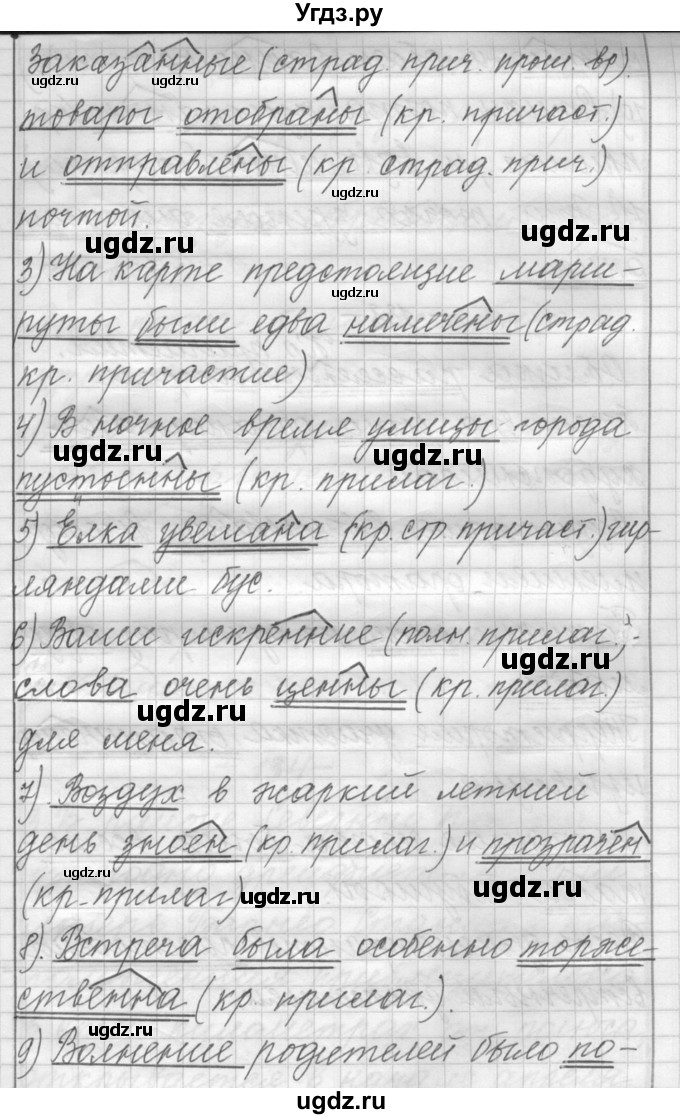 Угдз.ру
Заказанные (страд. прич. прош. вр).
ugdz.ru ugdz.ru
товары отобраны (кр. причаст.)
и отправлены (кр. страд. прич.)
ugdz.ru
почтой.
ugdz.ru ugdz.ru
3) На карте предстоящие марш-
ugdz.ru
руты были едва намечены (страд.
кр. причастие)
4) В ночное время улицы города
ugdz.ru ugdz.ru
пустынны (кр. прилаг.)
5) Ёлка увешана (кр. стр. причаст.) гир-
ляндами бус.
6) Ваши искренние (полн. прилаг.)
ugdz.ru
слова очень ценны (кр. прилаг.)
ugdz.ru
для меня.
7) Воздух в жаркий летний
день зноен (кр. прилаг.) и прозрачен
ugdz.ru
(кр. прилаг)
ugdz.ru ugdz.ru
8). Встреча была особенно торже-
ственна (кр. прилаг.).
ugdz.ru
9) Волнение родителей было по-
ugdz.ru